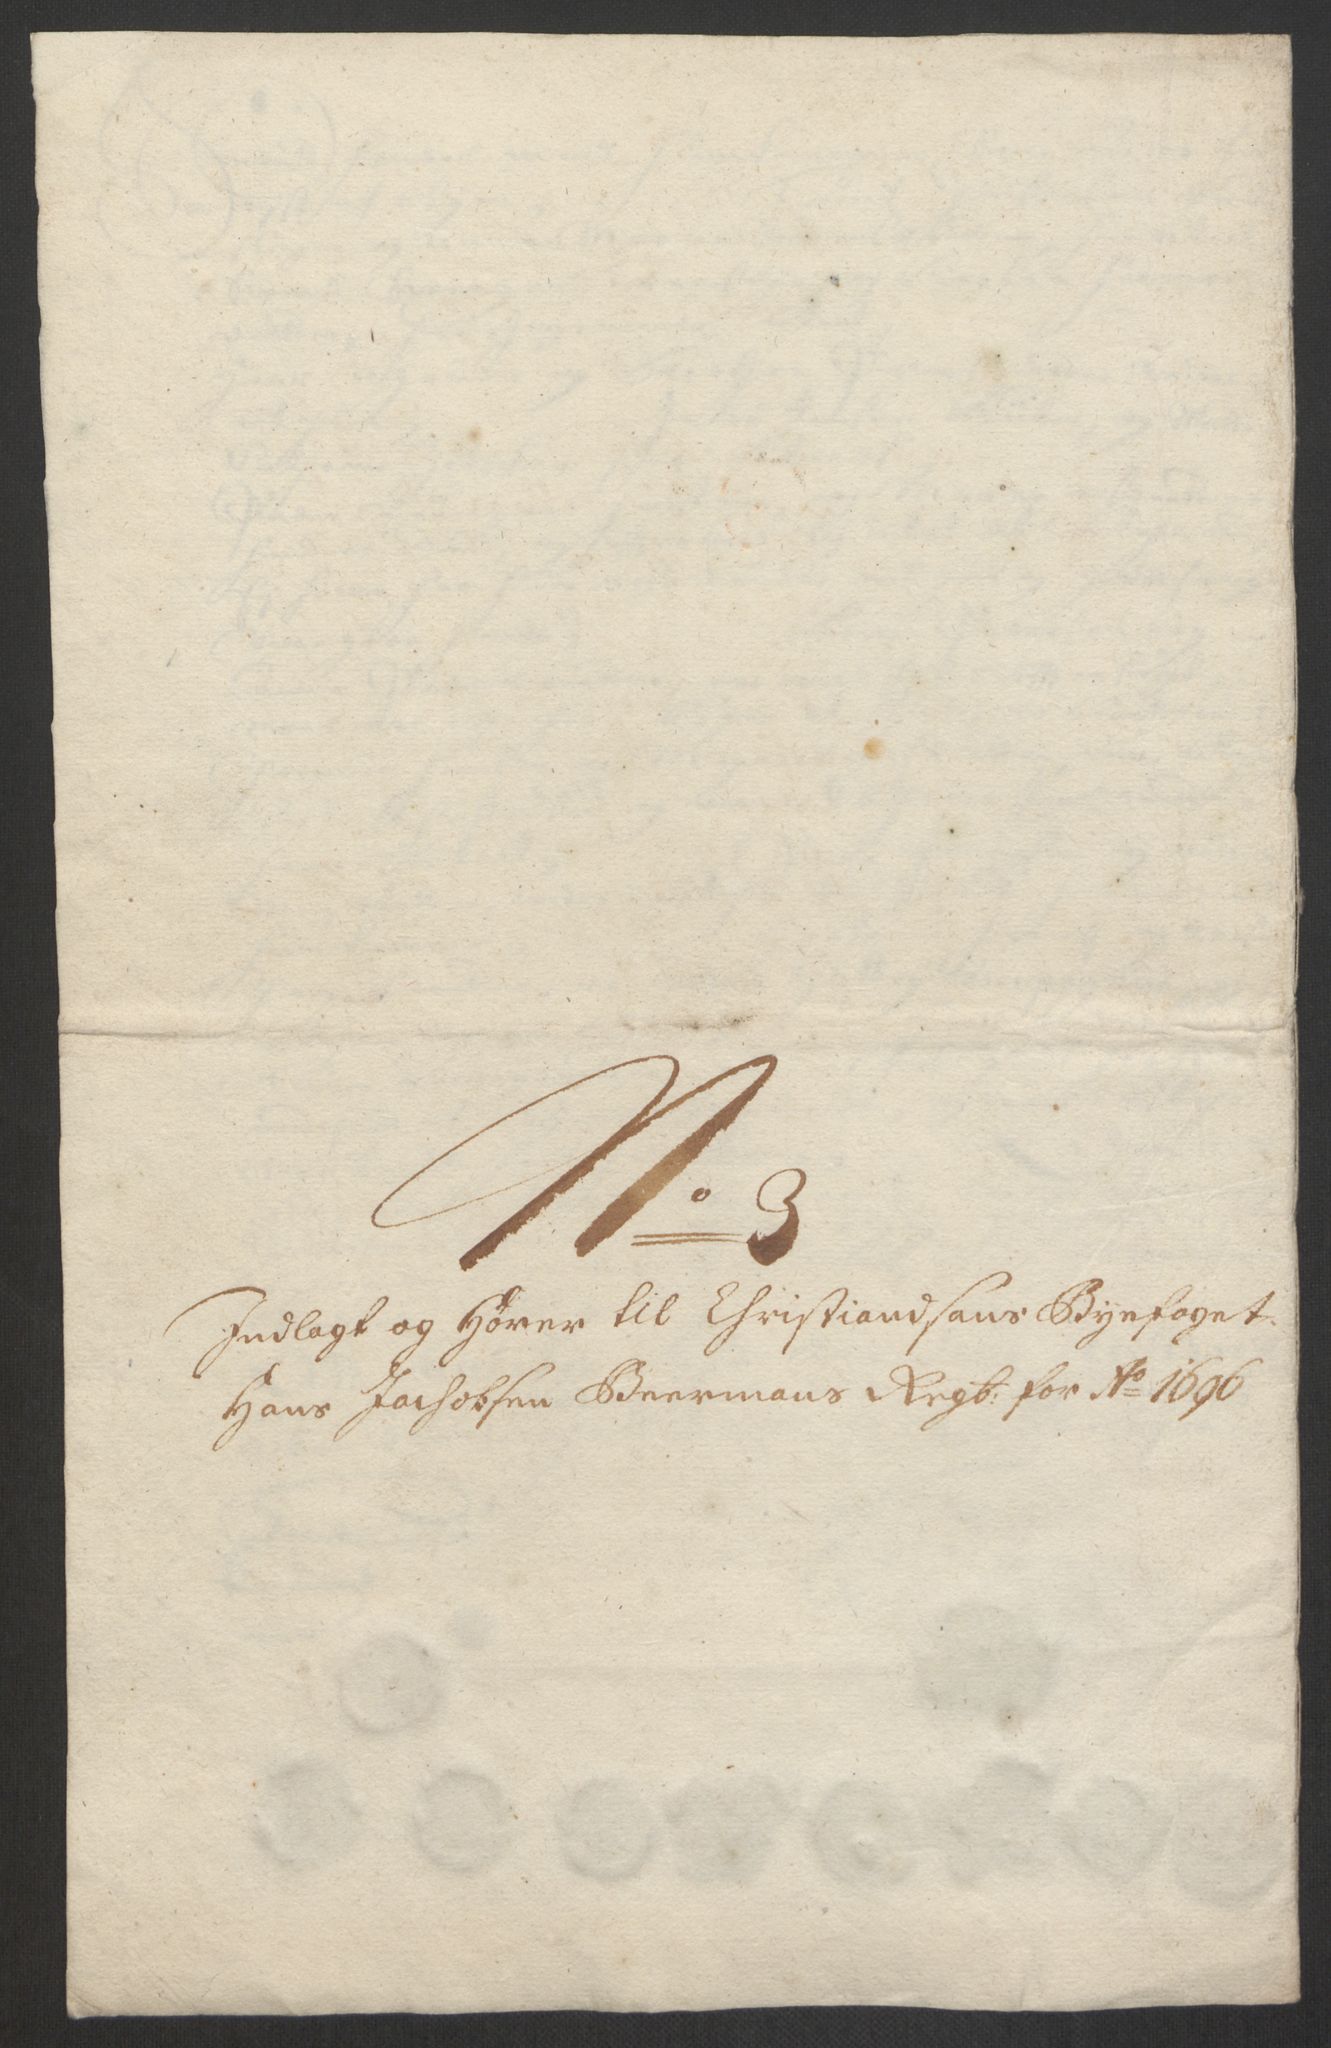 No 3
Indlagt og Hörer til Christiandsans Byefoget
Hans Jachobsen Beermans Regb: for Ao 1696